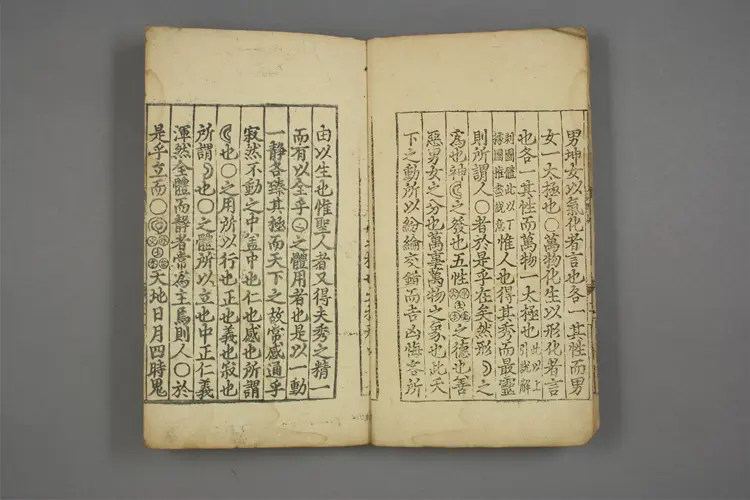 男坤女以氣化者言也各一其性而男
女一太極也○萬物化生以形化者言
也各一其性而萬物一太極也此以上引說解
剥圖體此以下據圖推盡說意惟人也得其秀而最靈
則所謂人○者於是乎在矣然形之
爲也神之發也五性之德也善
惡男女之分也萬事萬物之象也此天
下之動所以紛綸交錯而吉凶悔吝所
由以生也惟聖人者又得夫秀之精一
而有以全乎○之體用者也是以一動
一靜各臻其極而天下之故常感通乎
寂然不動之中蓋中也仁也感也所謂
也○之用所以行也正也義也寂也
所謂也○之體所以立也中正仁義
渾然全體而靜者常爲主焉則人○於
是乎立而○天地日月四時鬼